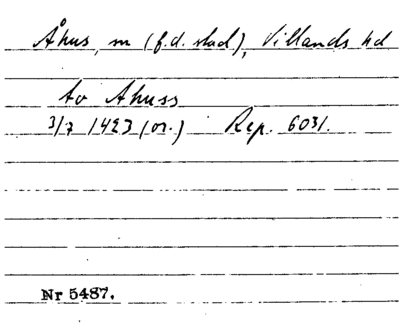 Åhus, m (f.d. stad), Villands hd
to Ahuss
3/7 1423 (or.) Rep. 6031.
Nr 5487.